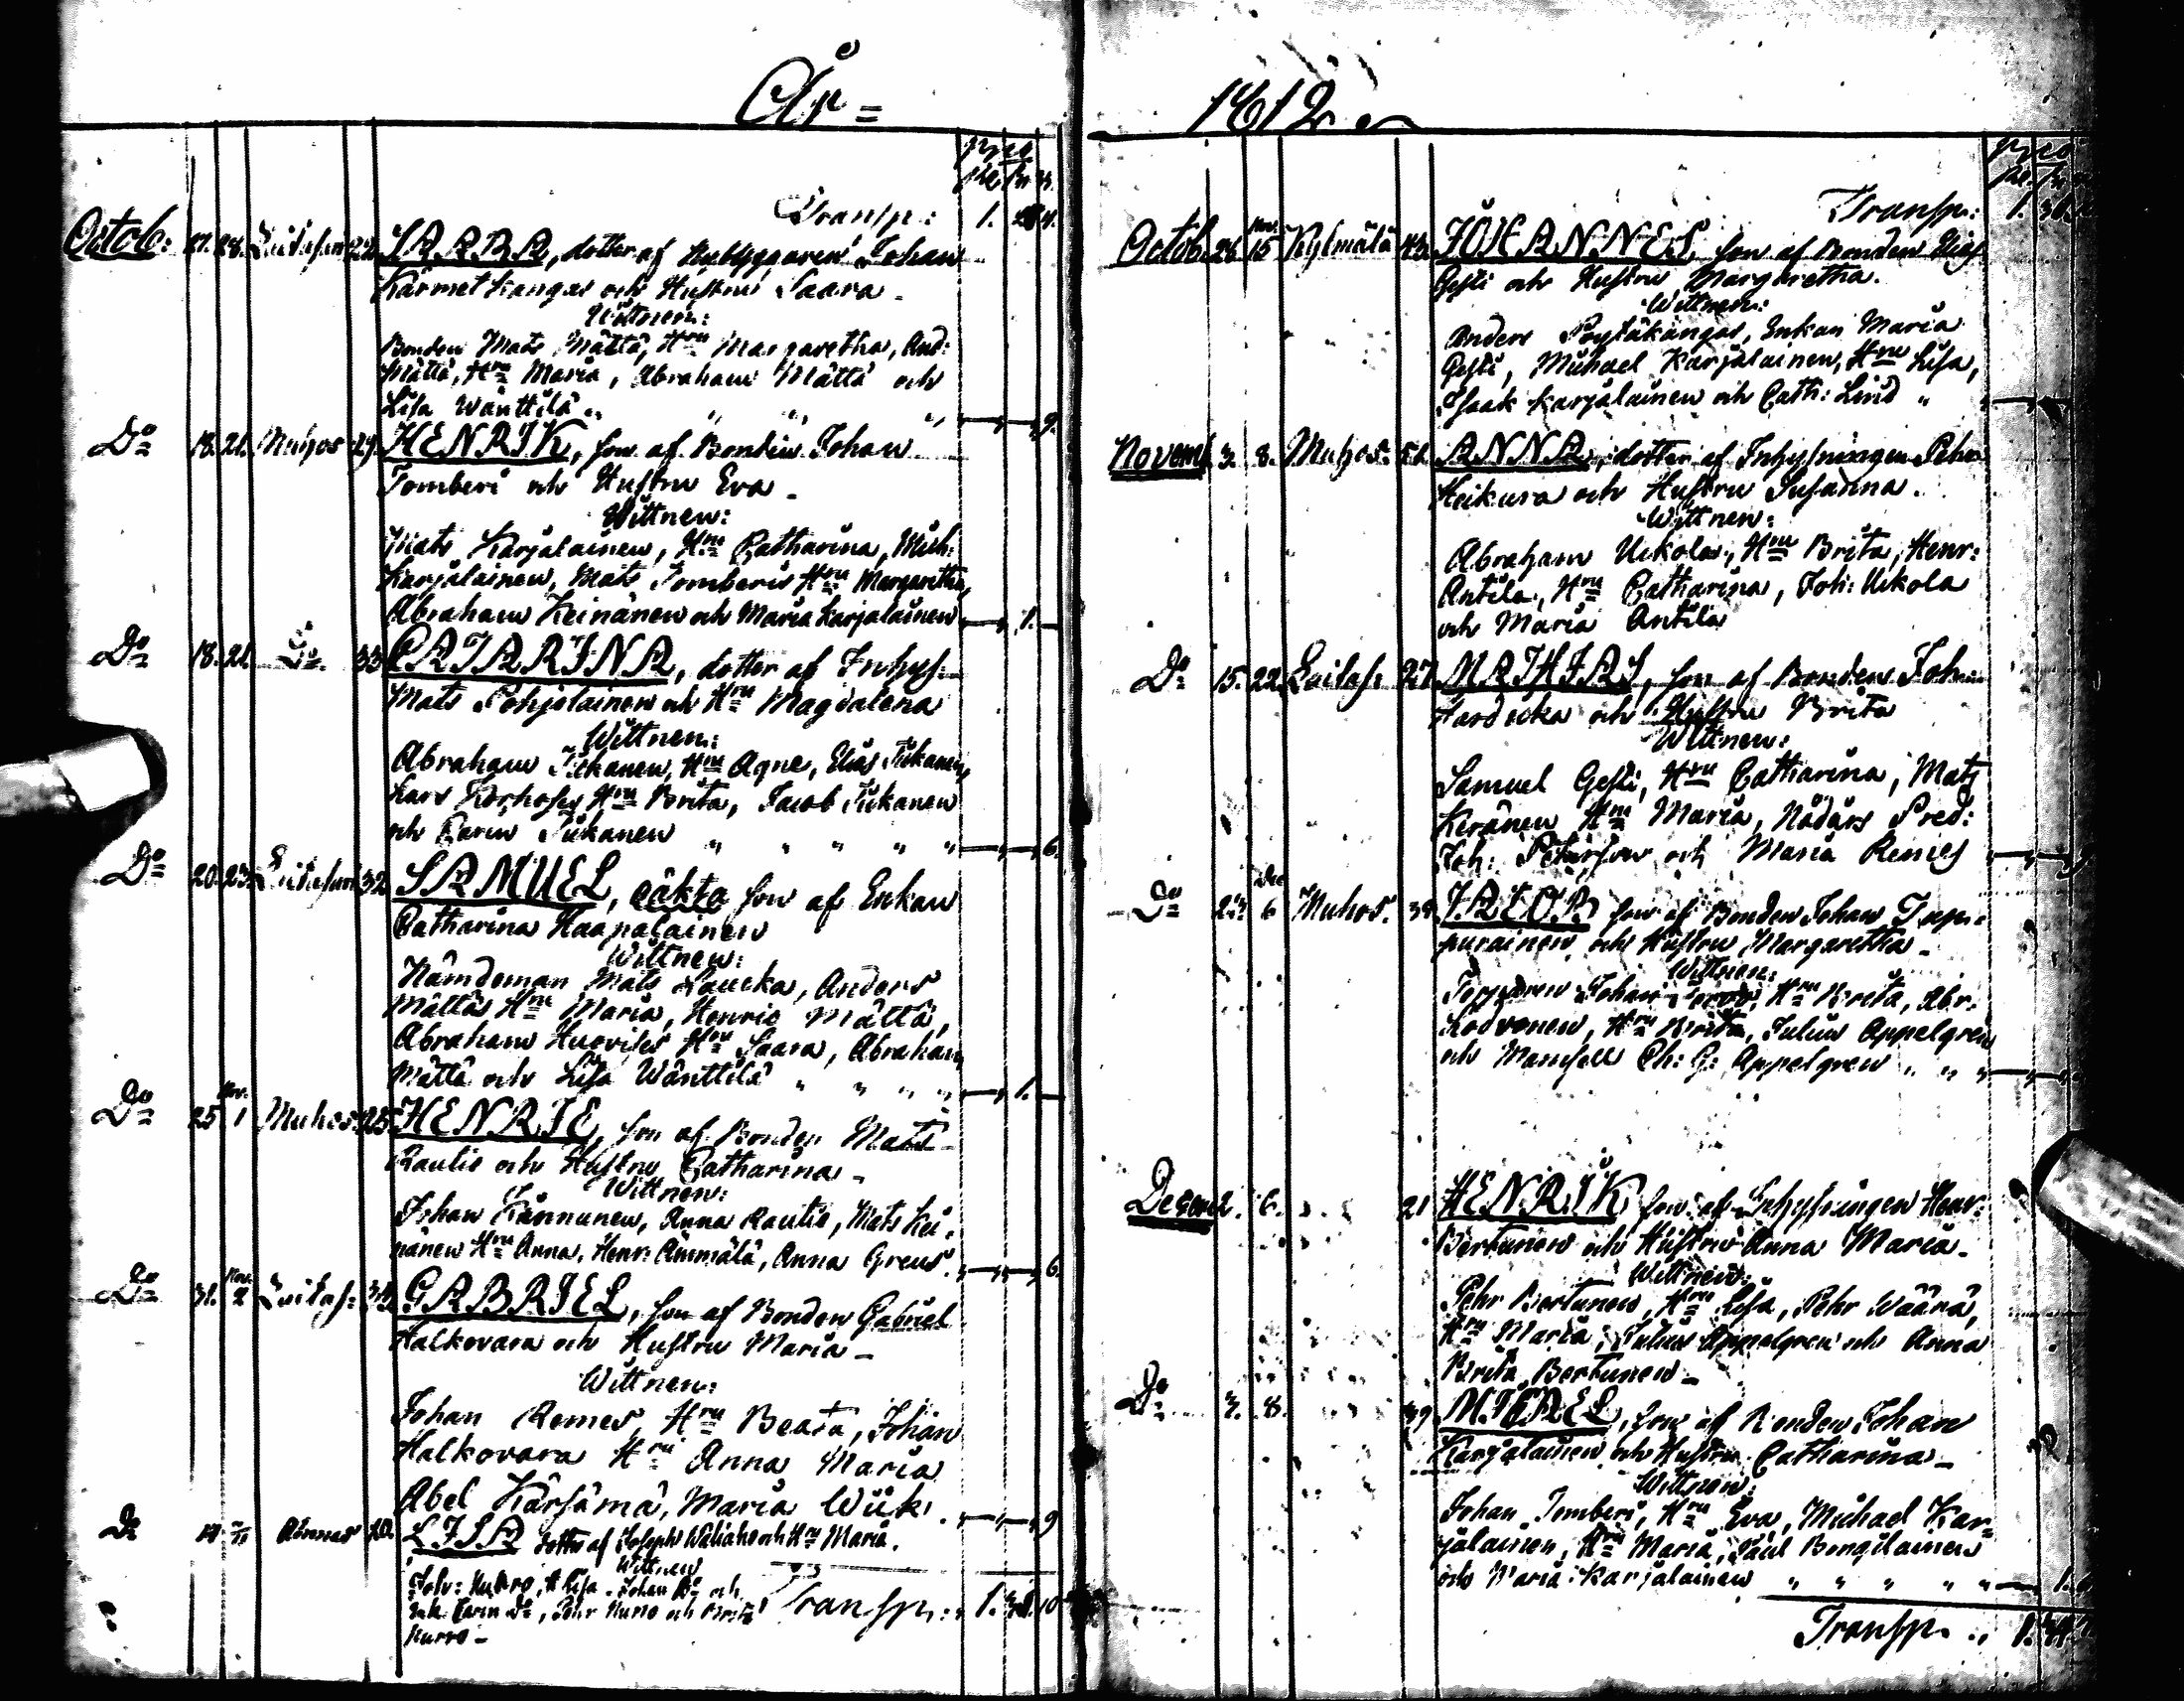 År =
Transp: 1.
Octob: 21. 28. SAARA, dotter af Nybyggaren Johan
Kärmet kangas och Hustru Saara.
Wittnen:
Bonden Mats Mättä, Hru Margaretha, And:
Mättä, Hru Maria, Abraham Mättä och
Lisa Wänttilä " " " 9.
Do 18. 21. Muhos 29. HENRIK, son af Bonden Johan
Tomberi och Hustru Eva.
Wittnen:
Mats Karjalainen, Hru Catharina, Mich:
Karjalainen, Mats Tomberis Hru Margaretha,
Abraham Keinänen och Maria Karjalainen 1.
Do 18. 21. Do 33 CATARINA, dotter af Inhys:
Mats Pohjolainen och Hru Magdalena
Wittnen:
Abraham Hru Agne, Elias Tiikanen,
Lars Hru Brita, Jacob Tiikanen
och Karin Tiikanen " " " " " 6.
Do 20. 23. 32 SAMUEL, oäkta son af Enkan
Catharina Haapalainen
Wittnen:
Nämdeman Mats Laucka, Anders
Mättäs Hru Maria, Henric Mättä,
Abraham Huovises Hru Saara, Abraham
Mättä och Lisa Wänttilä " " " " 1.
Do 25 Nov. 1 Muhos 25 HENRIC, son af Bonden Mats
Rautio och Hustru Catharina.
Wittnen:
Johan Kännunen, Anna Rautio, Mats Kei-
nänen Hru Anna, Henr: Ämmälä, Anna Greus. 6.
Do 31. Nov. 2 GABRIEL, son af Bonden Gabriel
Halkovara och Hustru Maria
Wittnen:
Johan Remes, Hru Beata, Johan
Halkovara Hru Anna Maria
Abel Kärsämä, Maria Wiik. 9
Do Ahmas 20. LISA dotter af Joseph och Hru Maria.
Wittnen
Joh: H Lisa. Johan Do och
Enk. Carin Do, Pehr Kurro och Brita
Kurro
Transp: 1. 10
1812
Transp: 1.
Octob. 26 Nov. 15 Kylmälä 43. JOHANNES son af Bonden Elias
Gesti och Hustru Margaretha.
Wittnen:
Anders Pöytäkangas, Enkan Maria
Gesti, Michael Karjalainen, Hru Lisa,
Isaak Karjalainen och Cath: Lind "
Novemb 3. 8. Muhos. ANNA, dotter af Inhysningen Pehr
Heikura och Hustru Susanna.
Wittnen:
Abraham Uckola, Hru Brita, Henr:
Antila, Hru Catharina, Joh: Uckola
och Maria Antila
Do 15. 22. Laitas: 27 MATHIAS, son af Bonden Johan
och Hustru Brita
Wittnen:
Samuel Gesti, Hru Catharina, Mats
Keränen Hru Maria, Nådårs Pred:
Joh: och Maria Remes
Do Dec 6 Muhos. 38 JACOB son af Bonden Johan Tup-
purainen och Hustru Margaretha
Wittnen:
Johan Hru Brita, Abr.
Hru Brita, Julius Appelgren
och Mamsell Ch: G: Appelgren " " "
Decem 2. 6. 21 HENRIK son af Inhysningen Henr:
Bertunen och Hustru Anna Maria.
Wittnen:
Pehr Bertunen, Hru Lisa, Pehr Wäärä,
Hru Maria, Julius Appelgren och Anna
Brita Bertunen
Do 3. 8. 39 MICHEL, son af Bonden Johan
Karjalainen och Hustru Catharina
Wittnen:
Johan Tomberi, Hru Eva, Michael Kar-
jalainen, Hru Maria, Paul Bongilainen
och Maria Karjalainen " " " " " 1.
Transp. 1.